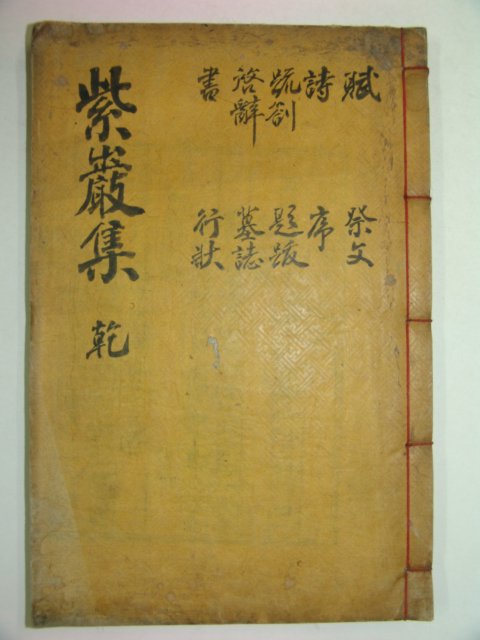 賦 祭文
詩 序
疏劄 題跋
啓辭 墓誌
書 行狀
紫巖集 乾